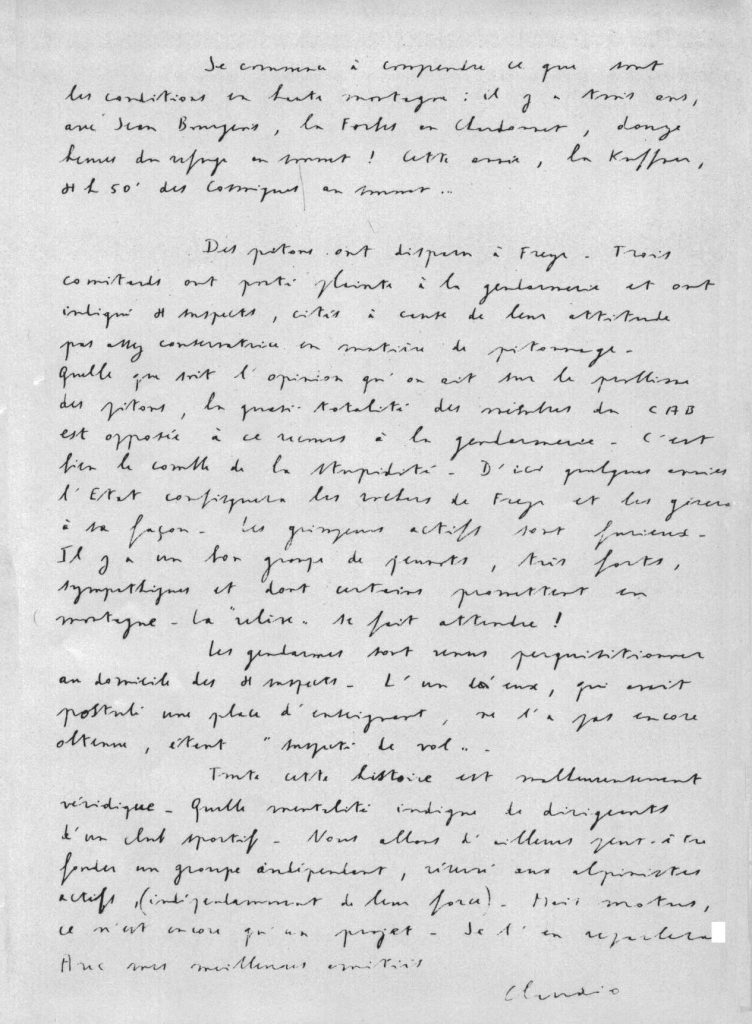 Je commence à comprendre ce que sont
les conditions en haute montagne : il y a trois ans,
avec Jean Bourgeois, la Forbes au Chardonnet, douze
heures du refuge au sommet ! Cette année, la Kuffner,
4 h 50' des Cosmiques au sommet ..
Des pitons ont disparu à Freyr - Trois
comitards ont porté plainte à la gendarmerie et ont
indiqué 4 suspects, cités à cause de leur attitude
pas assez conservatrice en matière de pitonnage -
Quelle que soit l'opinion qu'on ait sur le problème
des pitons, la quasi totalité des membres du CAB
est opposée à ce recours à la gendarmerie - C'est
bien le comble de la stupidité - D'ici quelques années
l'Etat confisquera les rochers de Freyr et les gérera
à sa façon - Les grimpeurs actifs sont furieux -
Il y a un bon groupe de jeunots, très forts,
sympathiques et dont certains promettent en
montagne - La "relève" se fait attendre !
Les gendarmes sont venus perquisitionner
au domicile des 4 suspects - L'un d'eux, qui avait
postulé une place d'enseignant, ne l'a pas encore
obtenue, étant "suspecté de vol" -
Toute cette histoire est malheureusement
véridique - Quelle mentalité indigne de dirigeants
d'un club sportif - Nous allons d'ailleurs peut-être
fonder un groupe indépendant, réservé aux alpinistes
actifs, (indépendamment de leur force) - Mais motus,
ce n'est encore qu'un projet - Je t'en reparlerai
Avec mes meilleures amitiés
Claudio